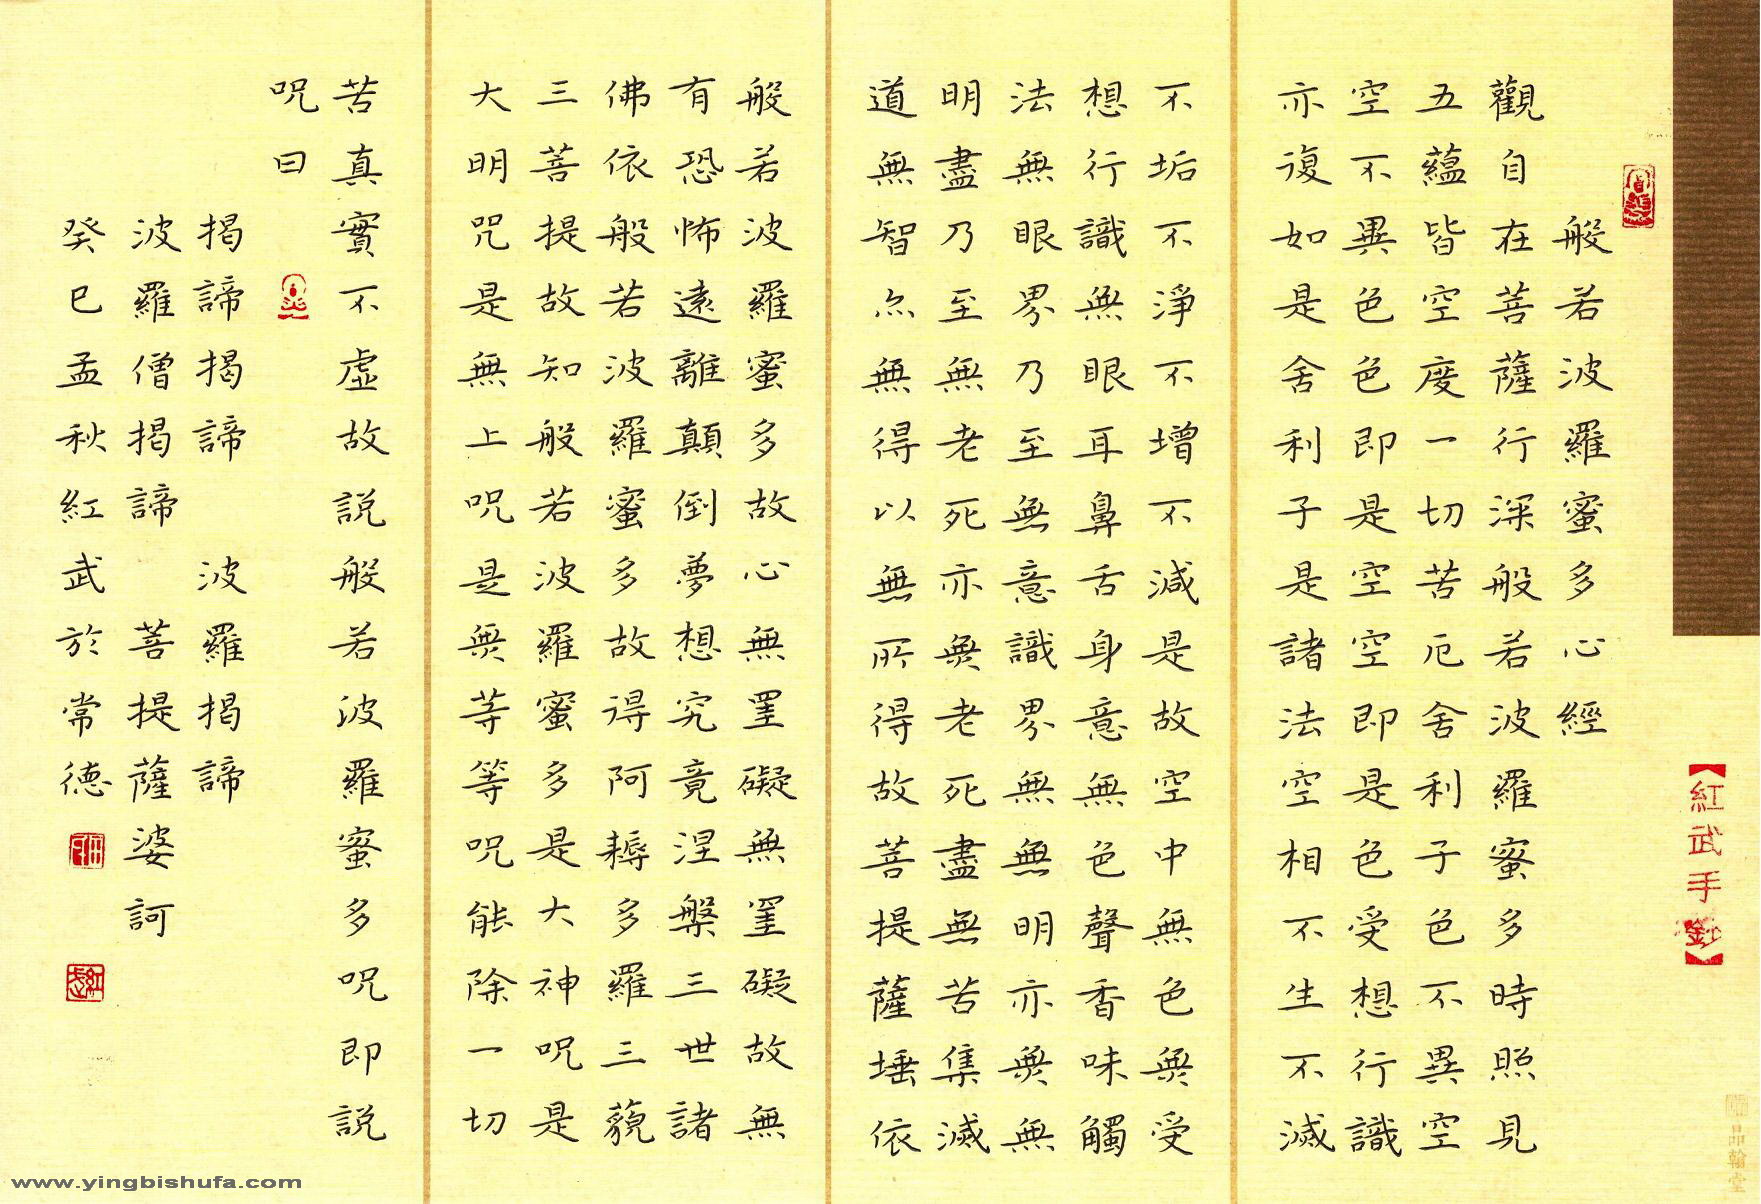 【紅武手鈔】
般若波羅蜜多心經
觀自在菩薩行深般若波羅蜜多時照見
五蘊皆空度一切苦厄舍利子色不異空
空不異色色即是空空即是色受想行識
亦復如是舍利子是諸法空相不生不滅
不垢不淨不增不減是故空中無色無受
想行識無眼耳鼻舌身意無色聲香味觸
法無眼界乃至無意識界無無明亦無無
明盡乃至無老死亦無老死盡無苦集滅
道無智亦無得以無所得故菩提薩埵依
般若波羅蜜多故心無罣礙無罣礙故無
有恐怖遠離顛倒夢想究竟涅槃三世諸
佛依般若波羅蜜多故得阿耨多羅三藐
三菩提故知般若波羅蜜多是大神咒是
大明咒是無上咒是無等等咒能除一切
苦真實不虛故説般若波羅蜜多咒即説
咒曰
揭諦揭諦 波羅揭諦
波羅僧揭諦 菩提薩婆訶
癸巳孟秋紅武於常德
紅武
昂翰堂
www.yingbishufa.com